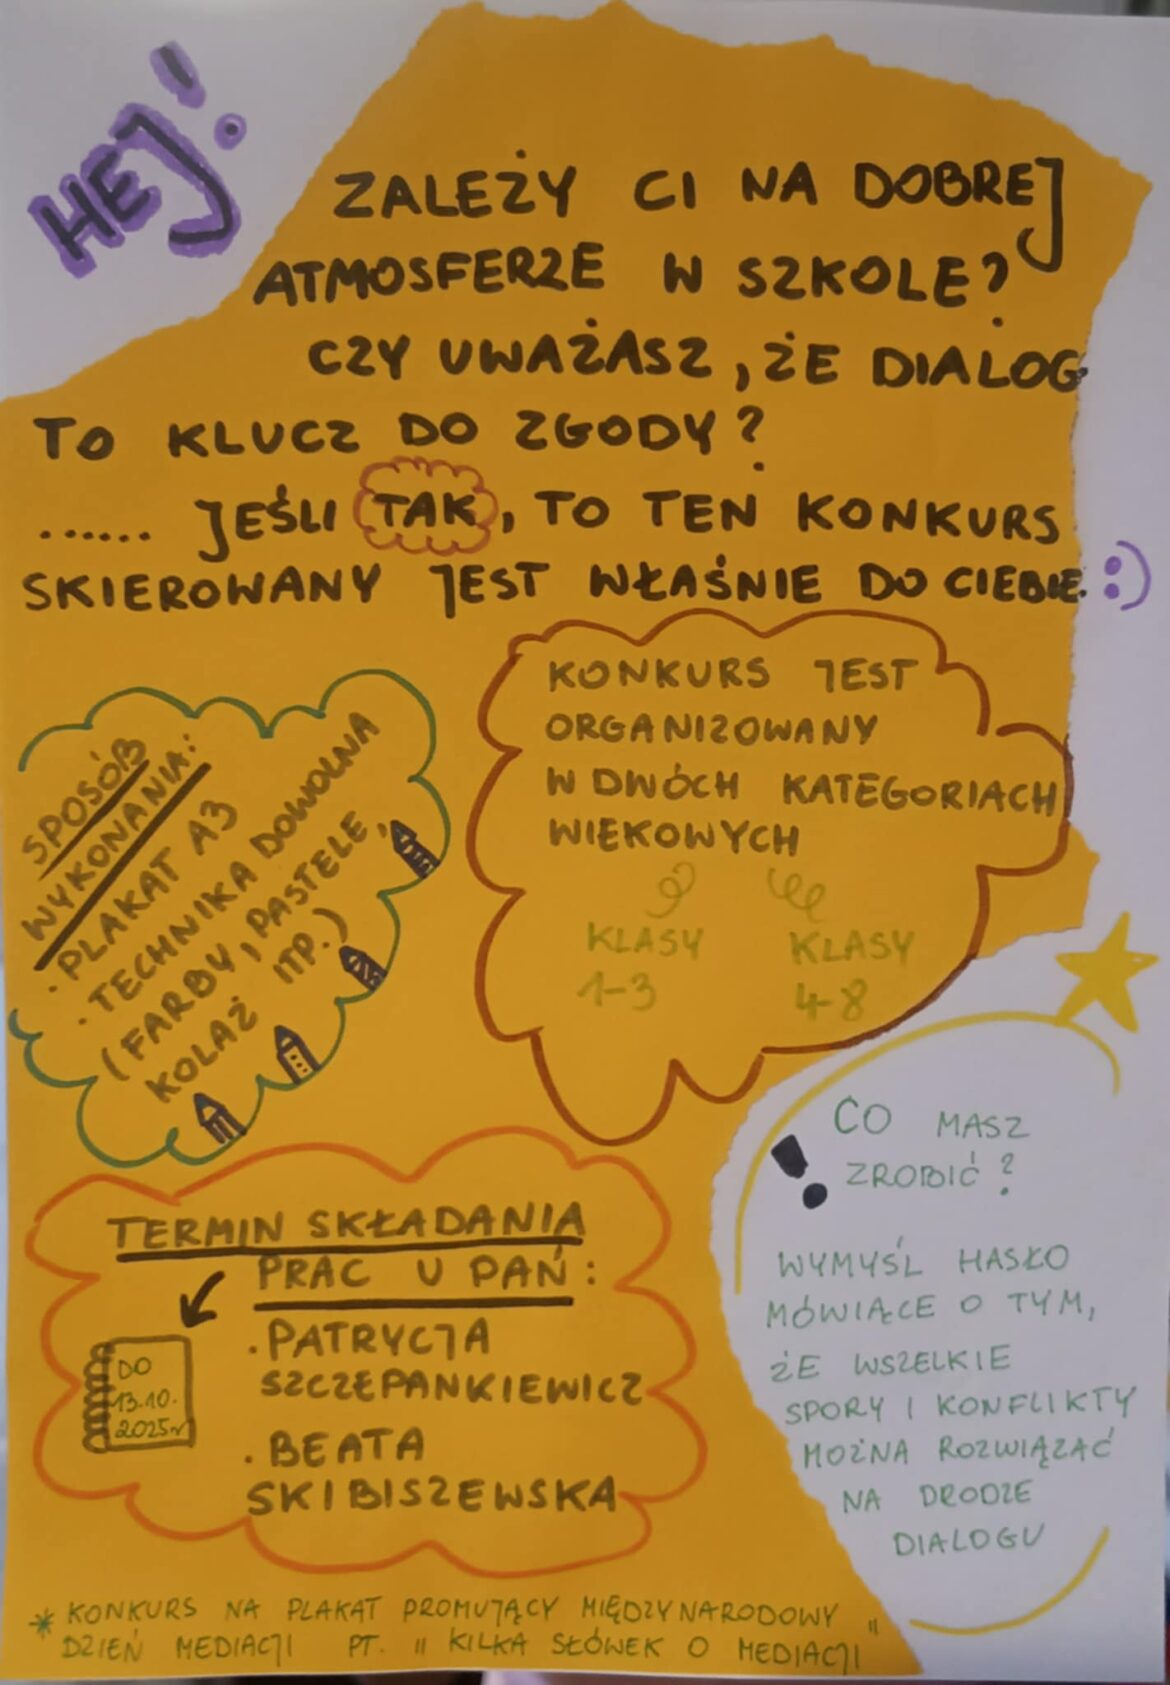 HEJ!
ZALEŻY CI NA DOBREJ
ATMOSFERZE W SZKOLE?
CZY UWAŻASZ, ŻE DIALOG
TO KLUCZ DO ZGODY?
...... JEŚLI TAK, TO TEN KONKURS
SKIEROWANY JEST WŁAŚNIE DO CIEBIE :)
SPOSÓB
WYKONANIA:
· PLAKAT A3
· TECHNIKA DOWOLNA
(FARBY, PASTELE,
KOLAŻ ITP.)
KONKURS JEST
ORGANIZOWANY
W DWÓCH KATEGORIACH
WIEKOWYCH
KLASY
1-3
KLASY
4-8
CO MASZ
ZROBIĆ?
WYMYŚL HASŁO
MÓWIĄCE O TYM,
ŻE WSZELKIE
SPORY I KONFLIKTY
MOŻNA ROZWIĄZAĆ
NA DRODZE
DIALOGU
TERMIN SKŁADANIA
PRAC U PAŃ:
· PATRYCJA
SZCZEPANKIEWICZ
· BEATA
SKIBISZEWSKA
DO
13.10.
2025r
* KONKURS NA PLAKAT PROMUJĄCY MIĘDZYNARODOWY
DZIEŃ MEDIACJI PT. "KILKA SŁÓWEK O MEDIACJI"